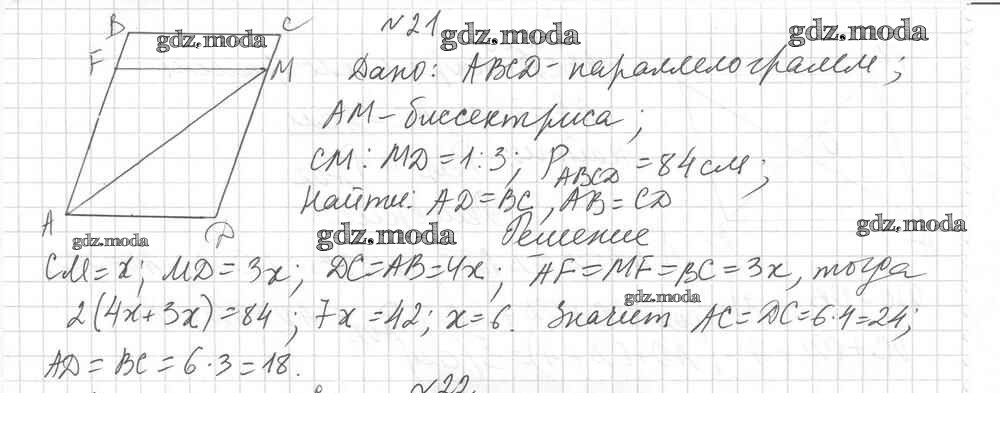 B C №21
F M Дано: ABCD - параллелограмм;
AM - биссектриса;
CM : MD = 1 : 3; P ABCD = 84 см;
Найти: AD = BC, AB = CD
A D Решение
CM = x; MD = 3x; DC = AB = 4x; AF = MF = BC = 3x, тогда
2(4x + 3x) = 84; 7x = 42; x = 6. Значит AC = DC = 6·4 = 24;
AD = BC = 6·3 = 18.
№22
gdz.moda
gdz.moda
gdz.moda
gdz.moda
gdz.moda
gdz.moda
gdz.moda